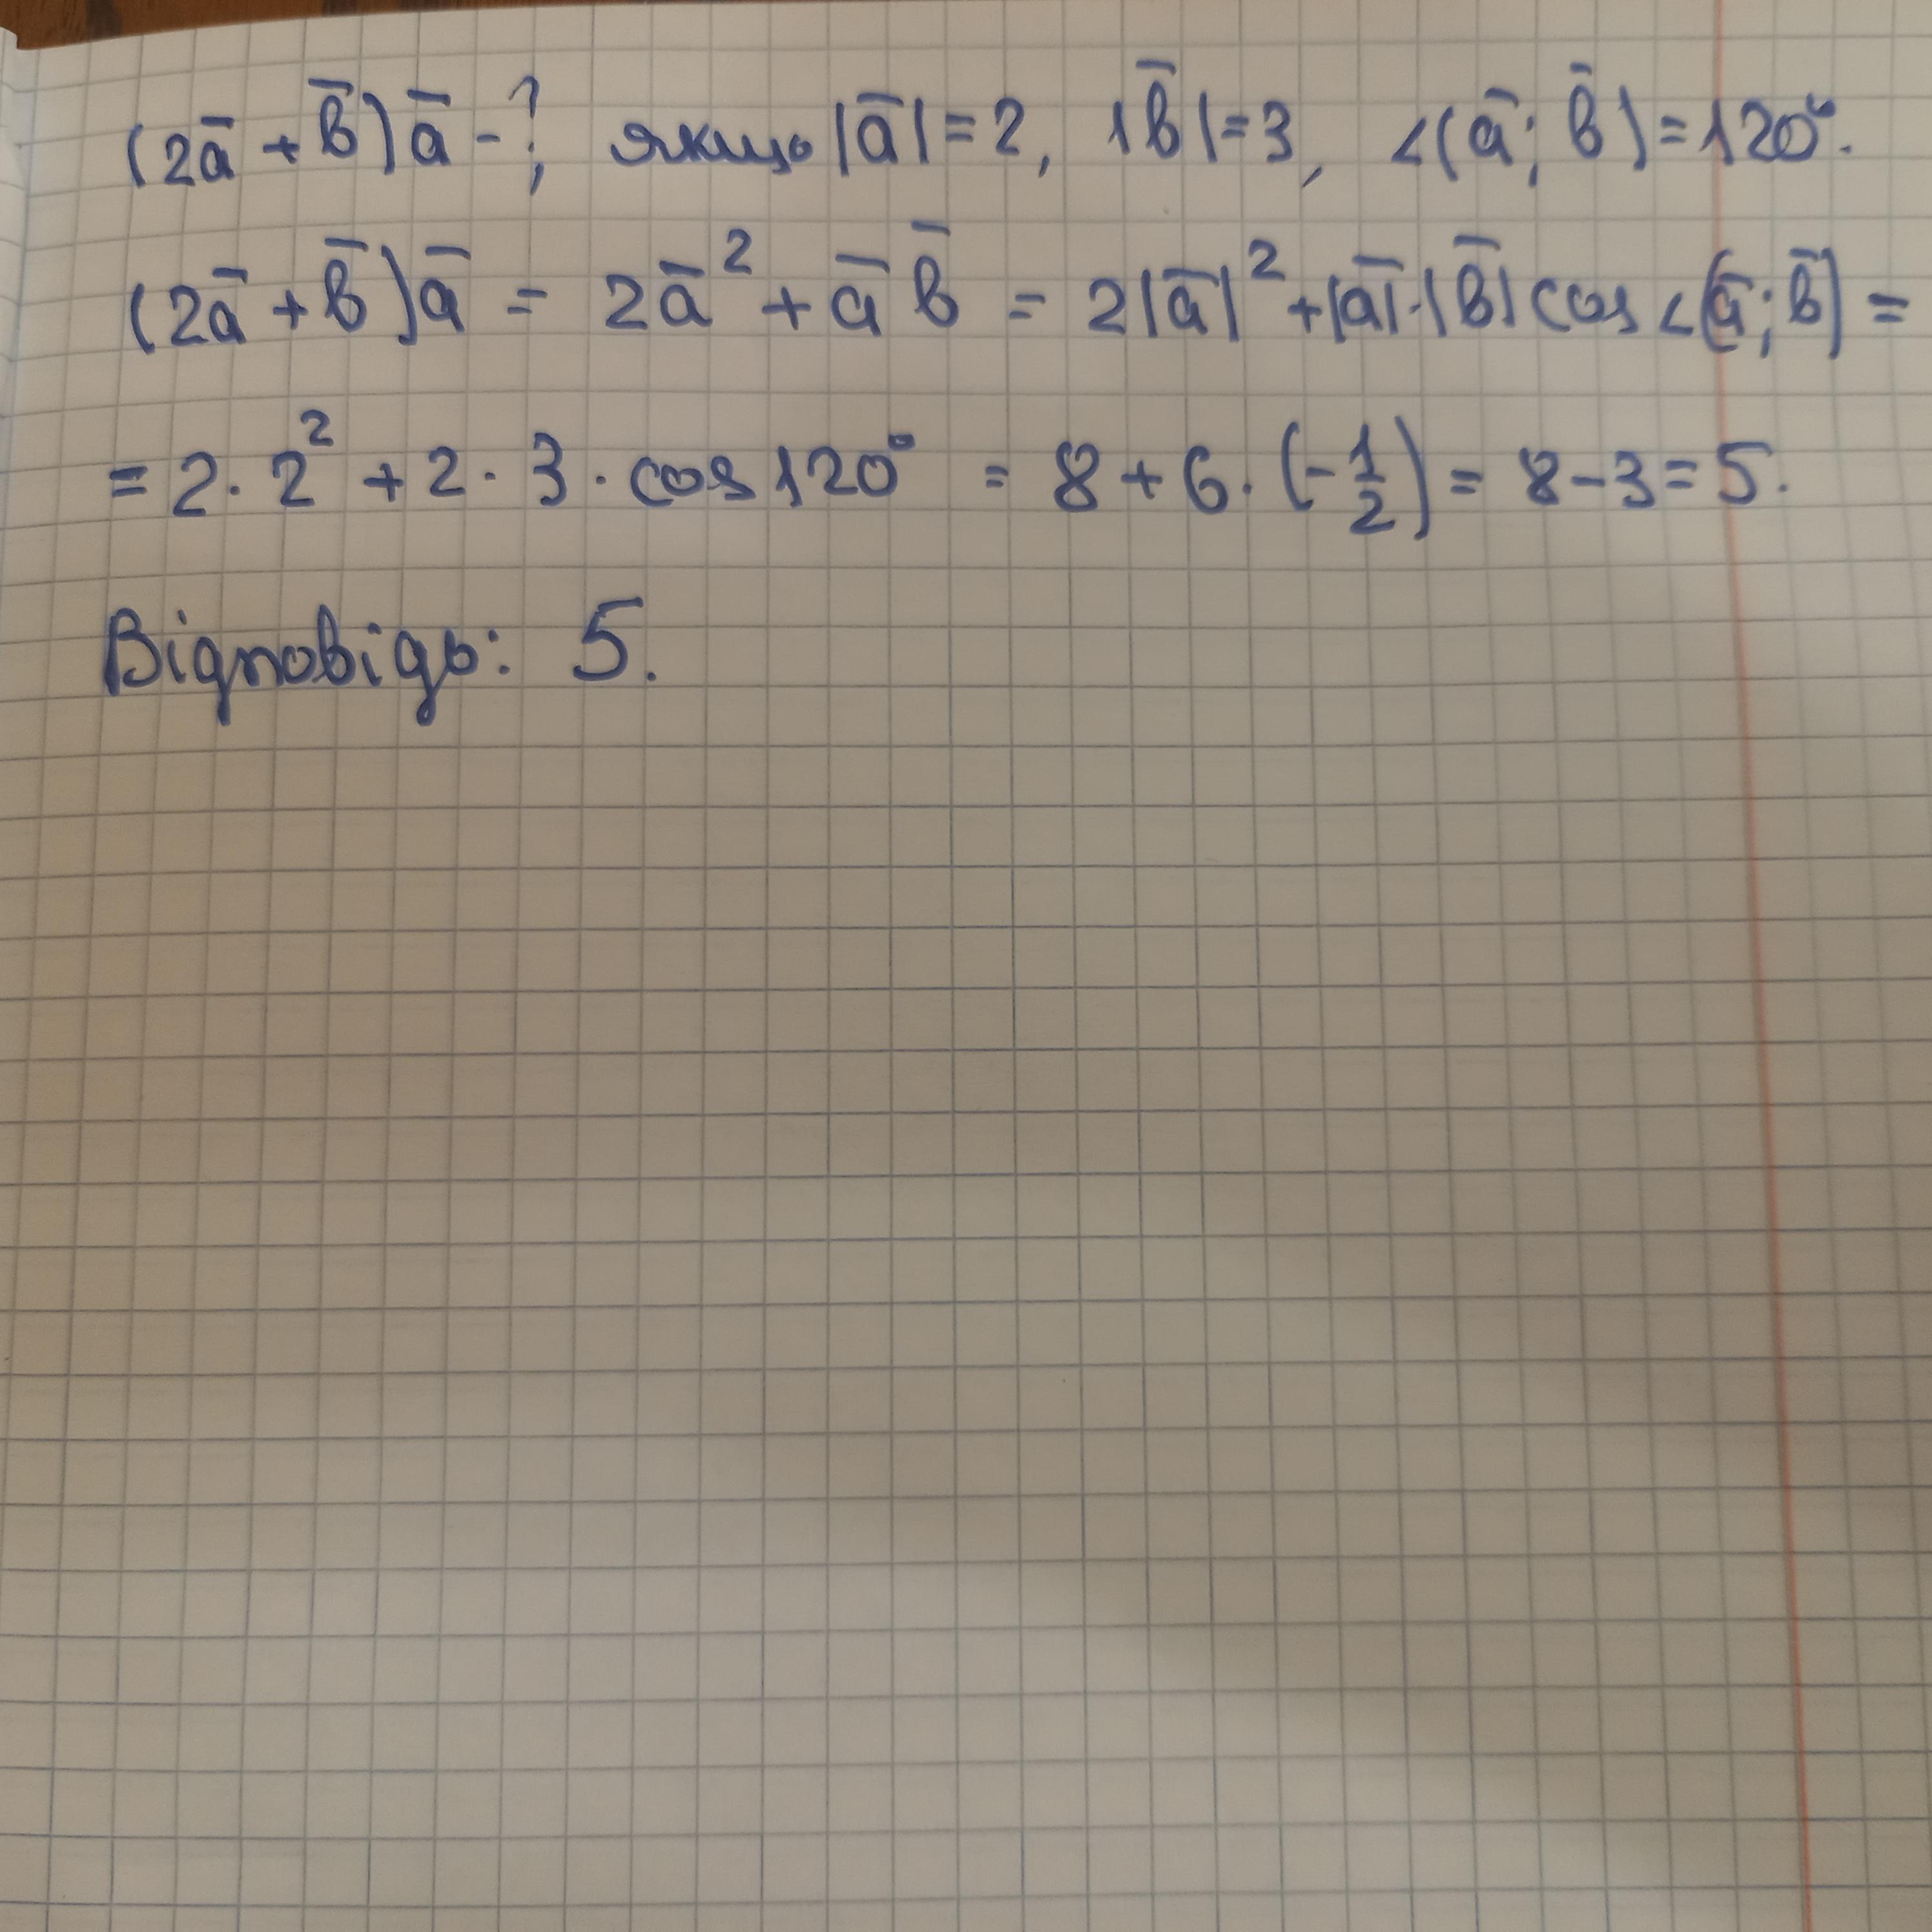 (2a̅ + b̅)a̅ - ?, якщо |a̅| = 2, |b̅| = 3, ∠(a̅; b̅) = 120°.
(2a̅ + b̅)a̅ = 2a̅² + a̅ b̅ = 2|a̅|² + |a̅|·|b̅| cos ∠(a̅; b̅) =
= 2 · 2² + 2 · 3 · cos 120° = 8 + 6 · (-1/2) = 8 - 3 = 5.
Відповідь: 5.